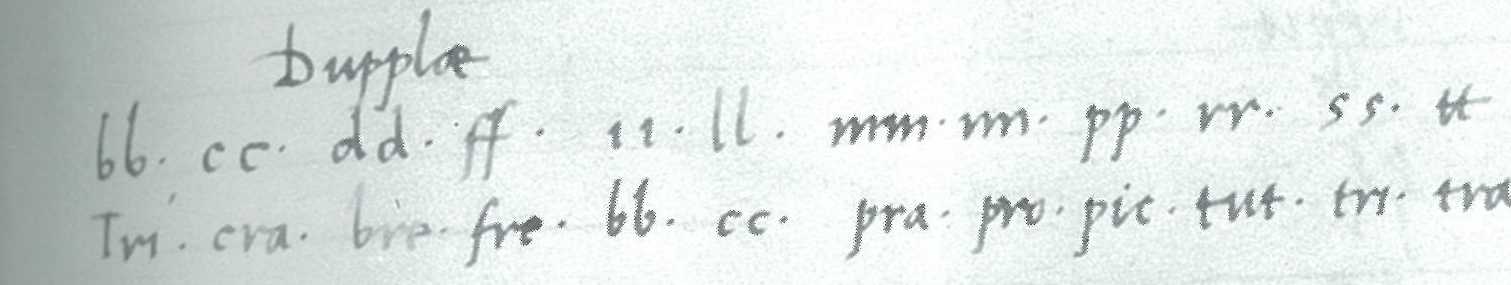 Dupplæ
bb. cc. dd. ff. ıı. ll. mm. nn. pp. rr. ss. tt
Tri. cra. bre. fre. bb. cc. pra. pro. pic. tut. tri. tra